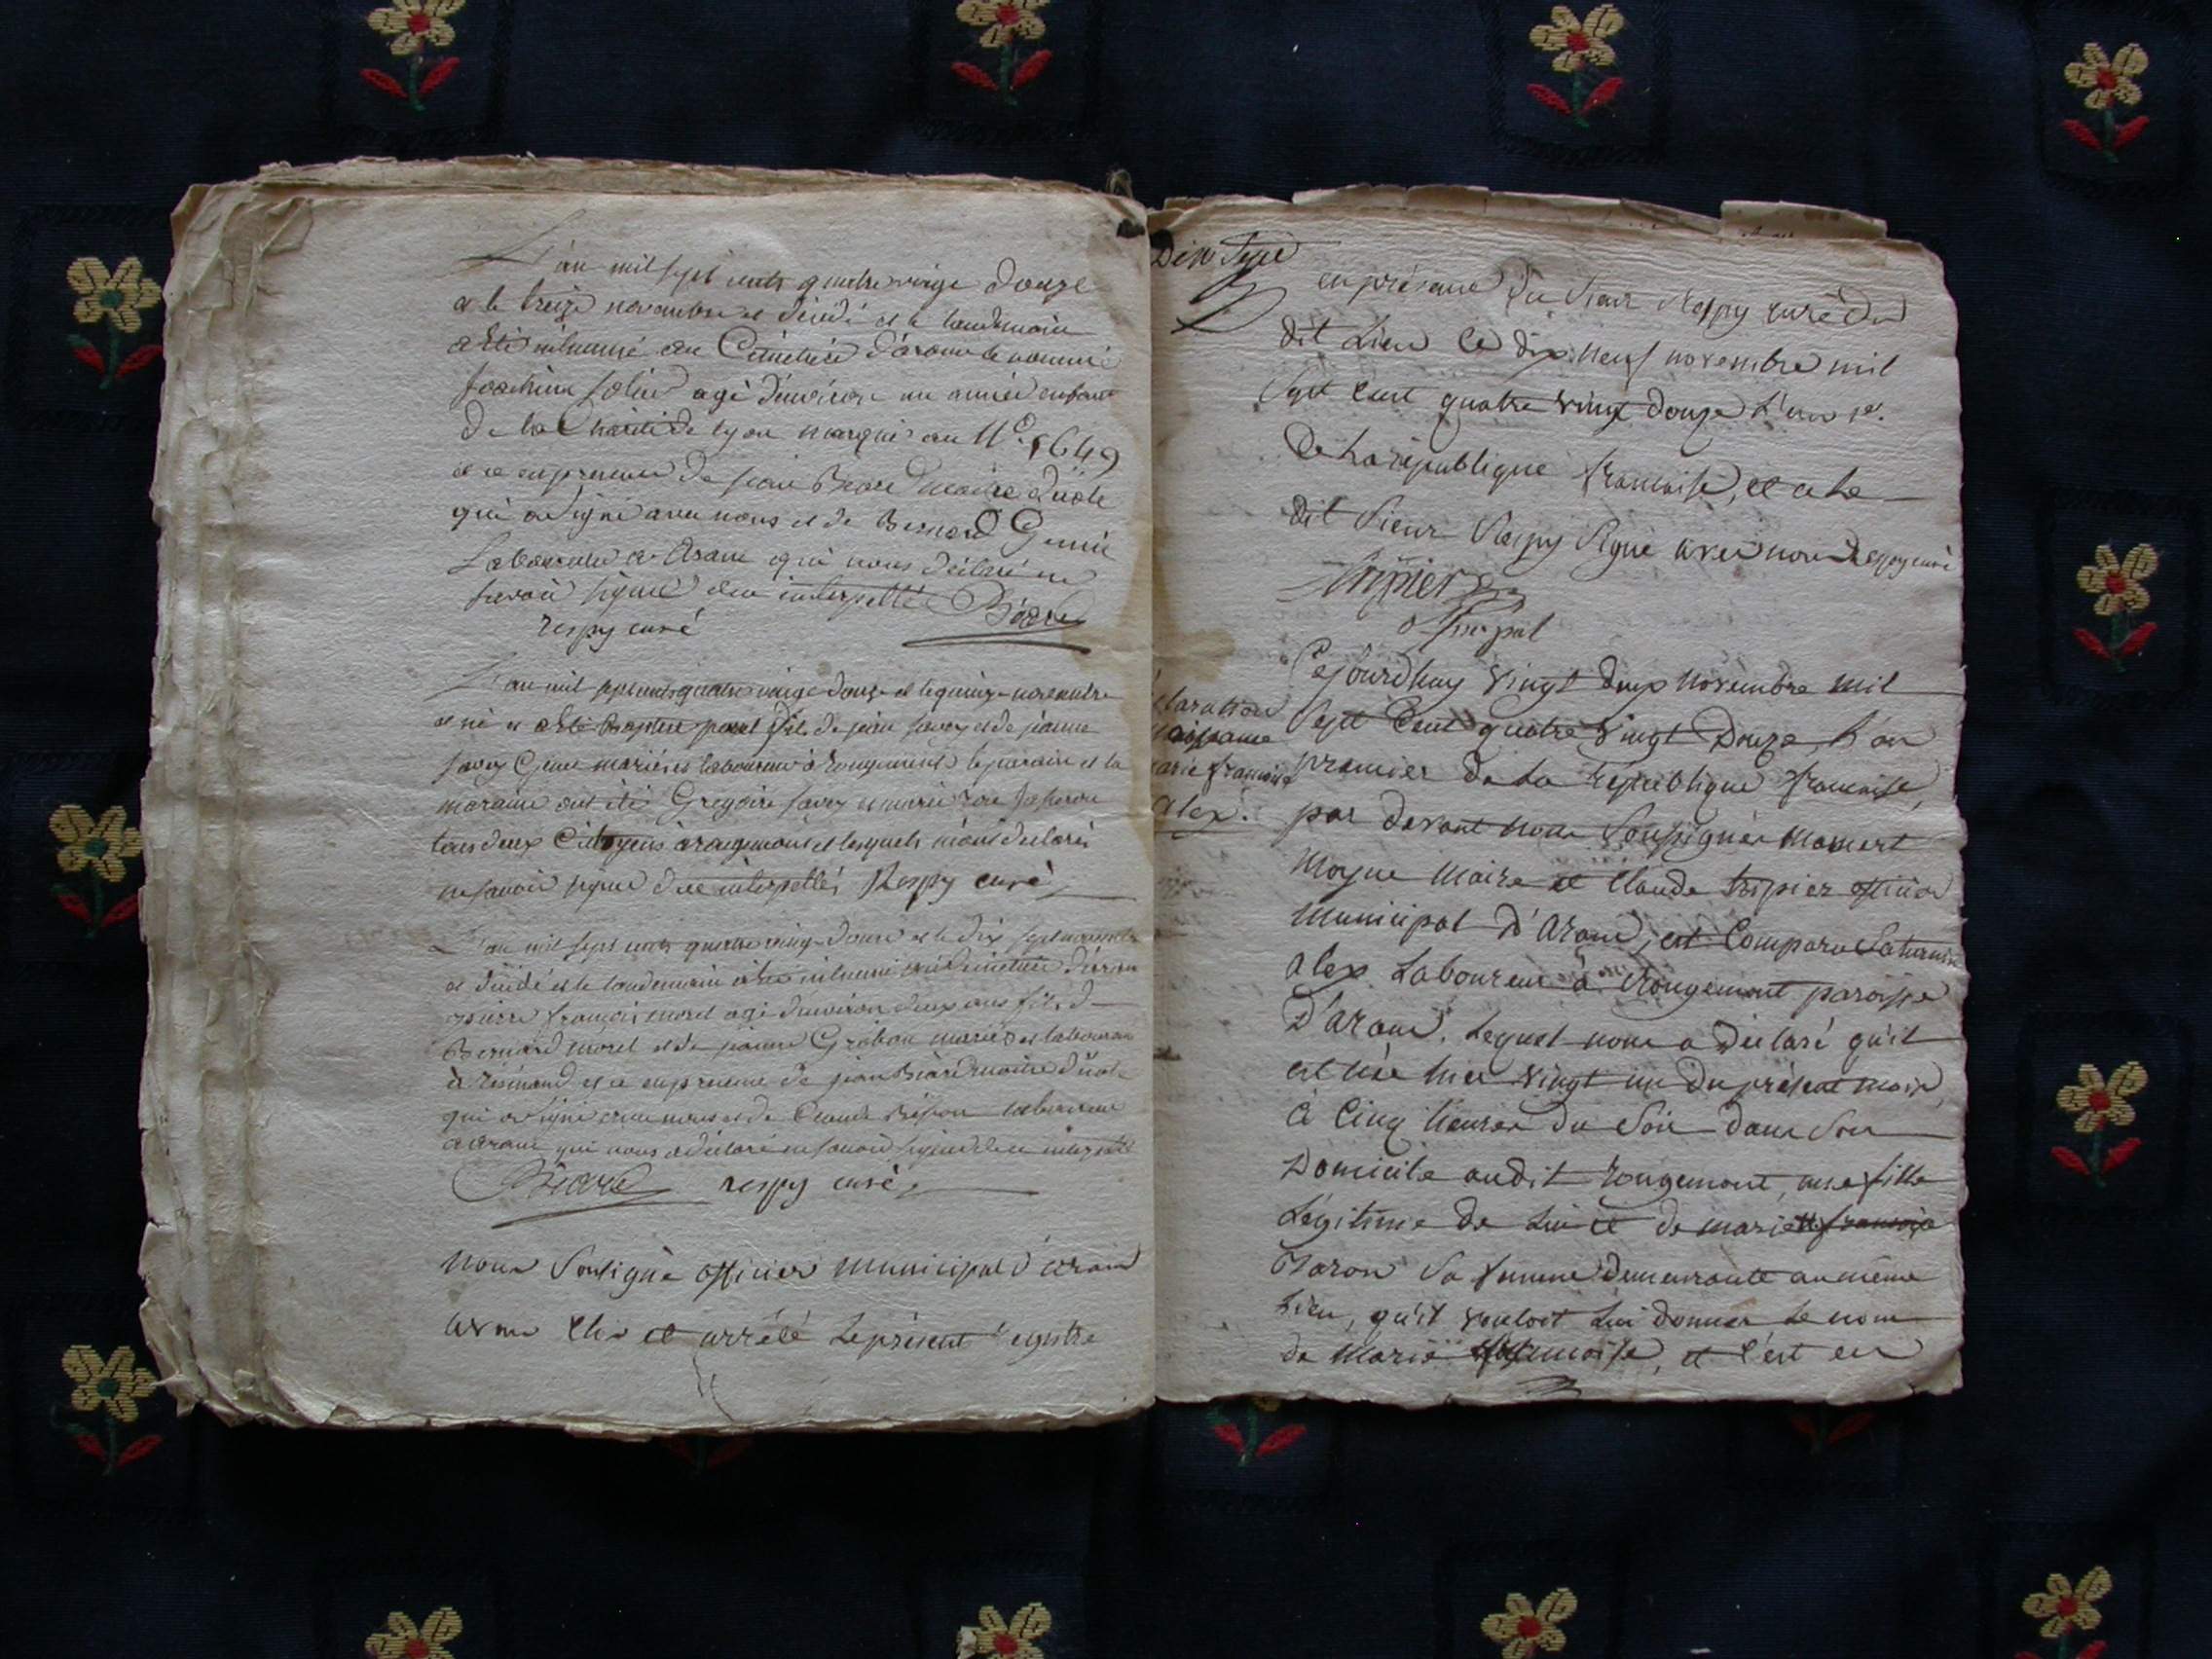 L'an mil sept cents quatre vingt douze
et le treize novembre est décédé et le lendemain
a été inhumé au Cimetière d'arane le nommé
joachim agé d'environ un année enfant
de la Charité de lyon marqué au N.º 1649
et ce en presence de jean Béard maitre d'école
qui a signé avec nous et de Bernard
Laboureur a Arane qui nous a déclaré ne
savoir signer de ce interpellé Béard
respy curé
L'an mil sept cents quatre vingt douze et le quinze novembre
est né et a été Baptisé fils de jean savey et de jeanne
savey mariés et laboureur à rougemont le parain et la
maraine ont été Gregoire savey et marie
tous deux Citoyens à rougemont et lesquels m'ont declarés
ne savoir signer de ce interpellés Respy curé
L'an mil sept cents quatre vingt douze et le dix sept novembre
est décédé et le lendemain a été inhumé au Cimetière d'arane
pierre françois morel agé d'environ deux ans fils de
Bernard morel et de jeanne mariés et laboureur
à et ce en presence de jean Béard maitre d'école
qui a signé avec nous et de Claude laboureur
a arane qui nous a déclaré ne savoir signer de ce interpellé
Béard respy curé
Nous Soussigné officier municipal d'arane
avons clos et arrêté le présent registre
Dix Sept
en présence du Sieur Respy curé du
dit Lieu Ce dix neuf novembre mil
Sept Cent quatre vingt Douze L'an 1er.
De La république française, et a Le
dit Sieur Respy Signé avec nous Respy curé
tripier
o. municipal
Cejourdhuy vingt deux novembre mil
Sept Cent quatre vingt Douze, L'an
premier de La république française,
par devant nous Soussignés Mamert
Moyne Maire et Claude tripier officier
Municipal D'Arane, est Comparu Saturnin
Alex Laboureur à Rougemont paroisse
D'arane. Lequel nous a Déclaré qu'il
est née hier vingt un du présent mois,
à Cinq heures du Soir dans Son
Domicile audit rougemont, une fille
Légitime de Lui et de marie françoise
Baron Sa femme Demeurante au même
Lieu, qu'il vouloit Lui donner Le nom
de Marie françoise, et C'est en
claration
naissance
arie françoise
Alex.